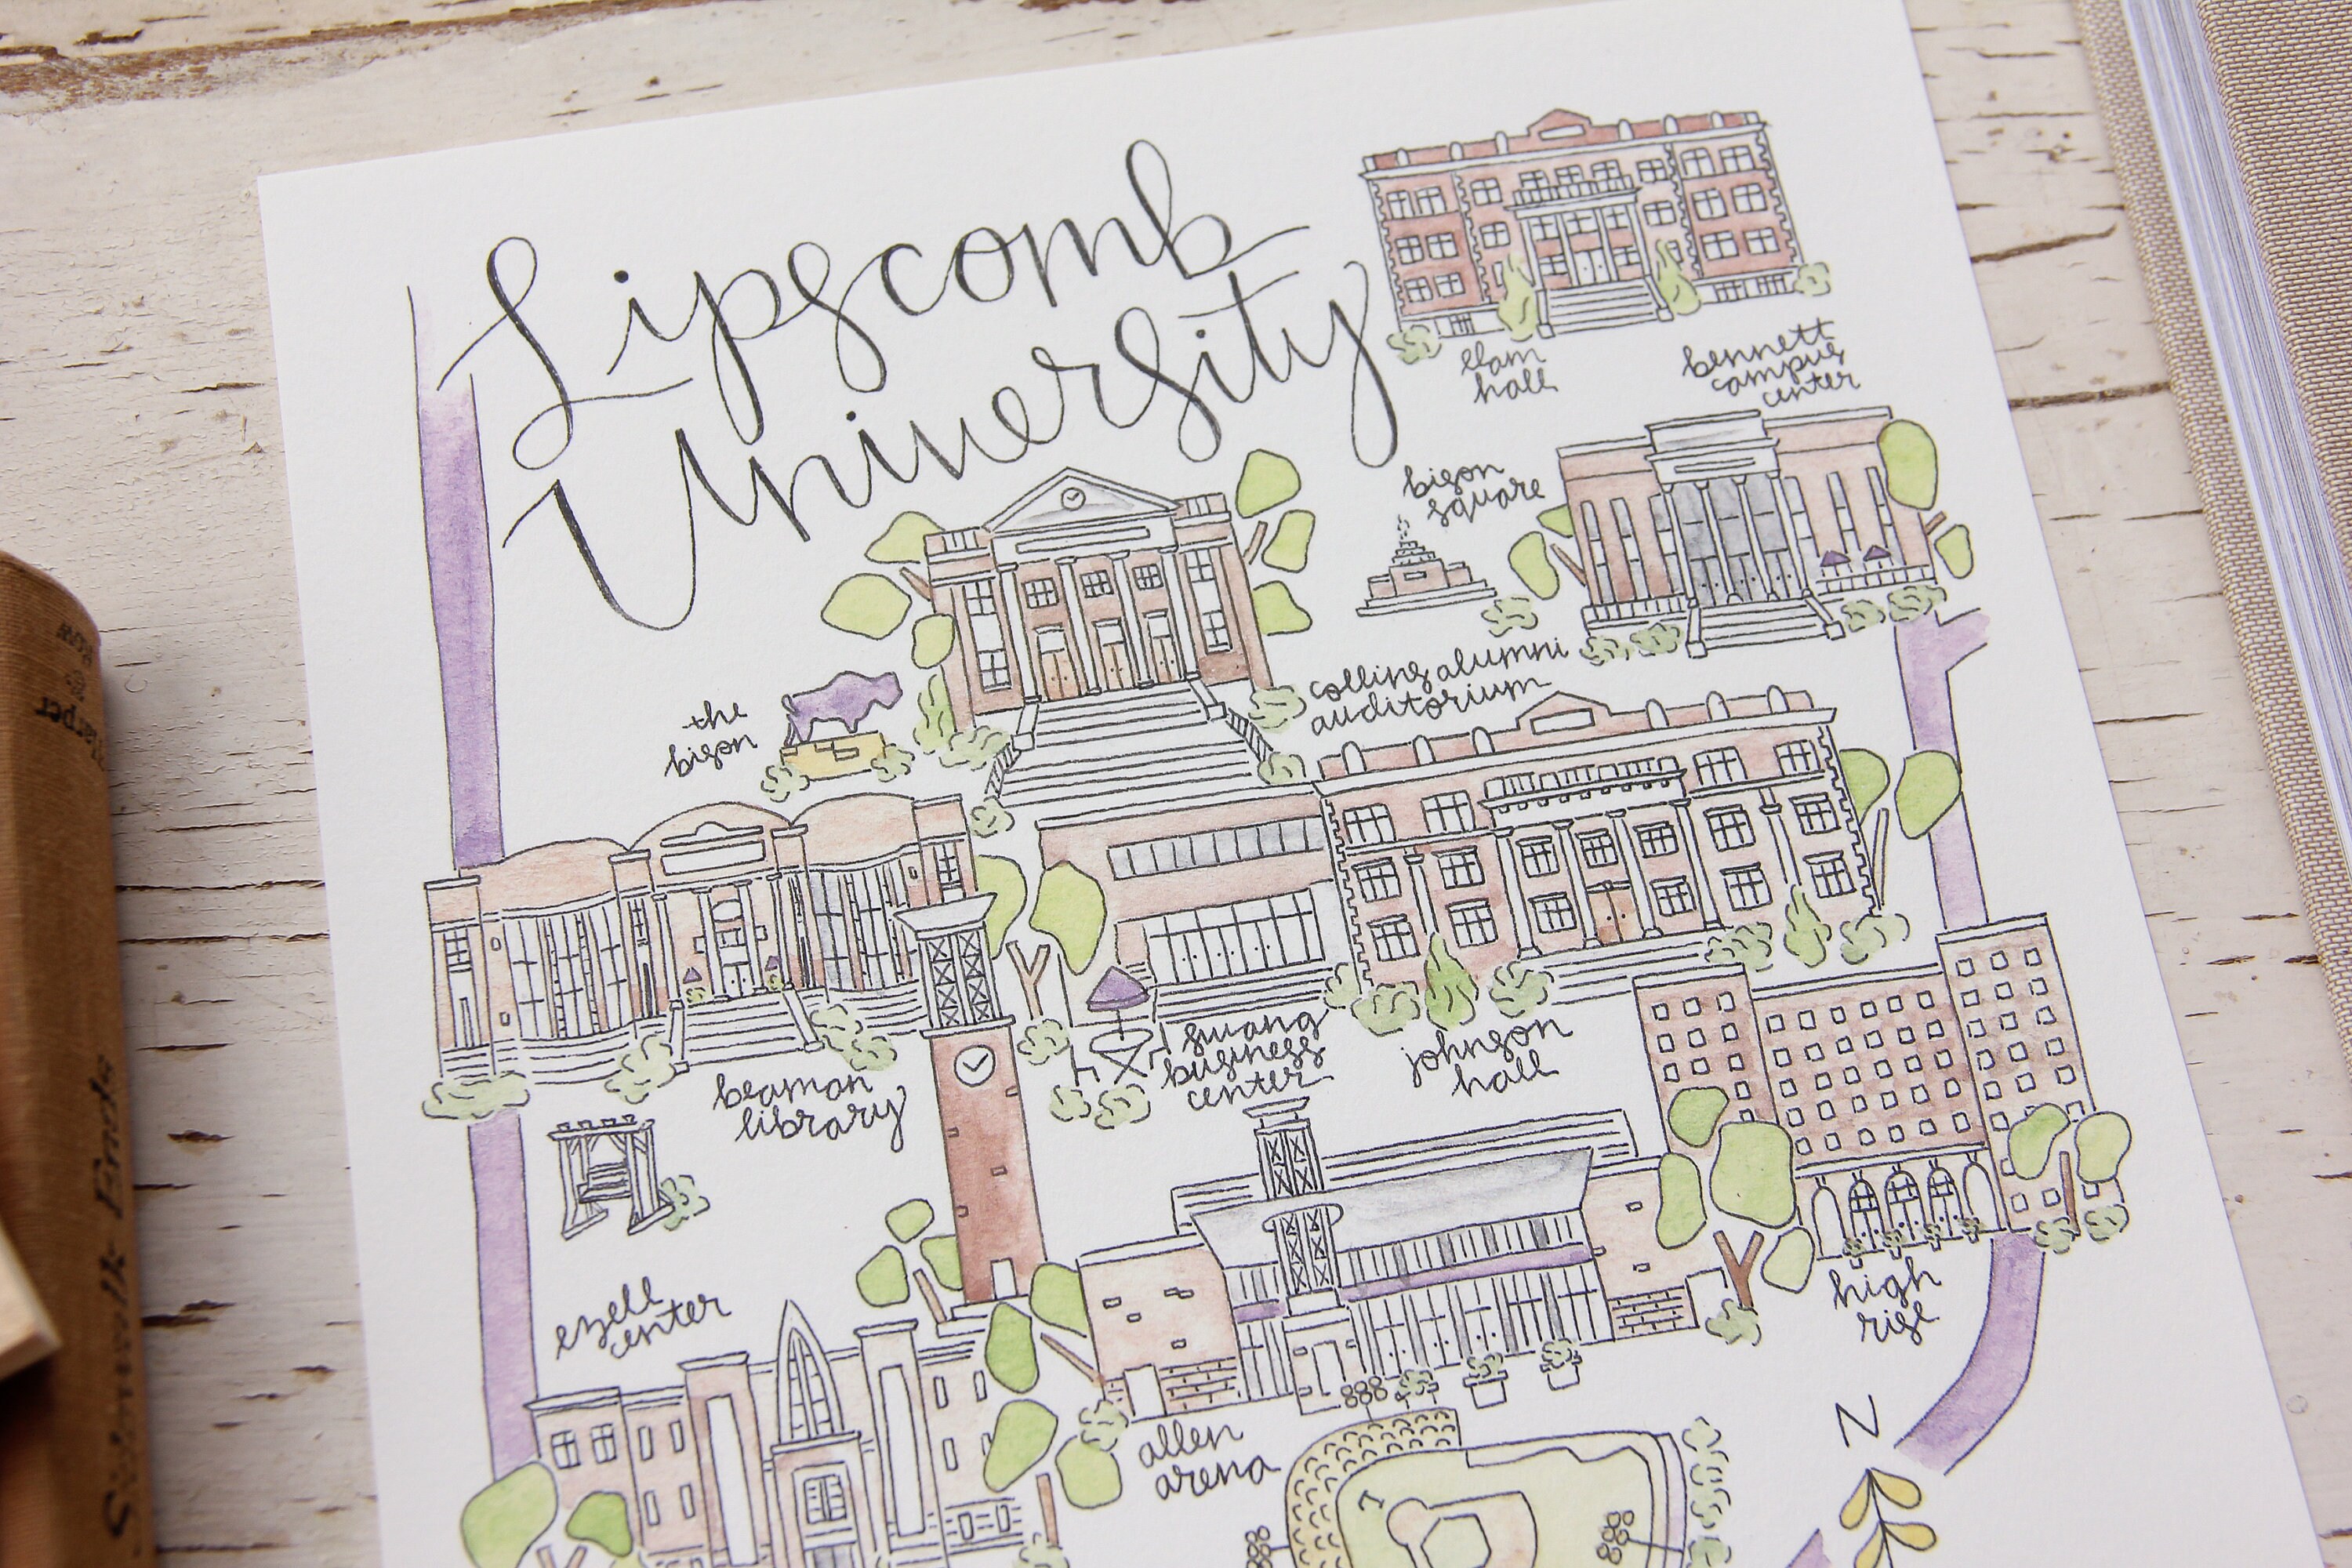 Lipscomb
University
elam
hall
bennett
campus
center
bison
square
collins alumni
auditorium
the
bison
swang
business
center
johnson
hall
beaman
library
high
rise
ezell
center
allen
arena
N
Harper
& Row